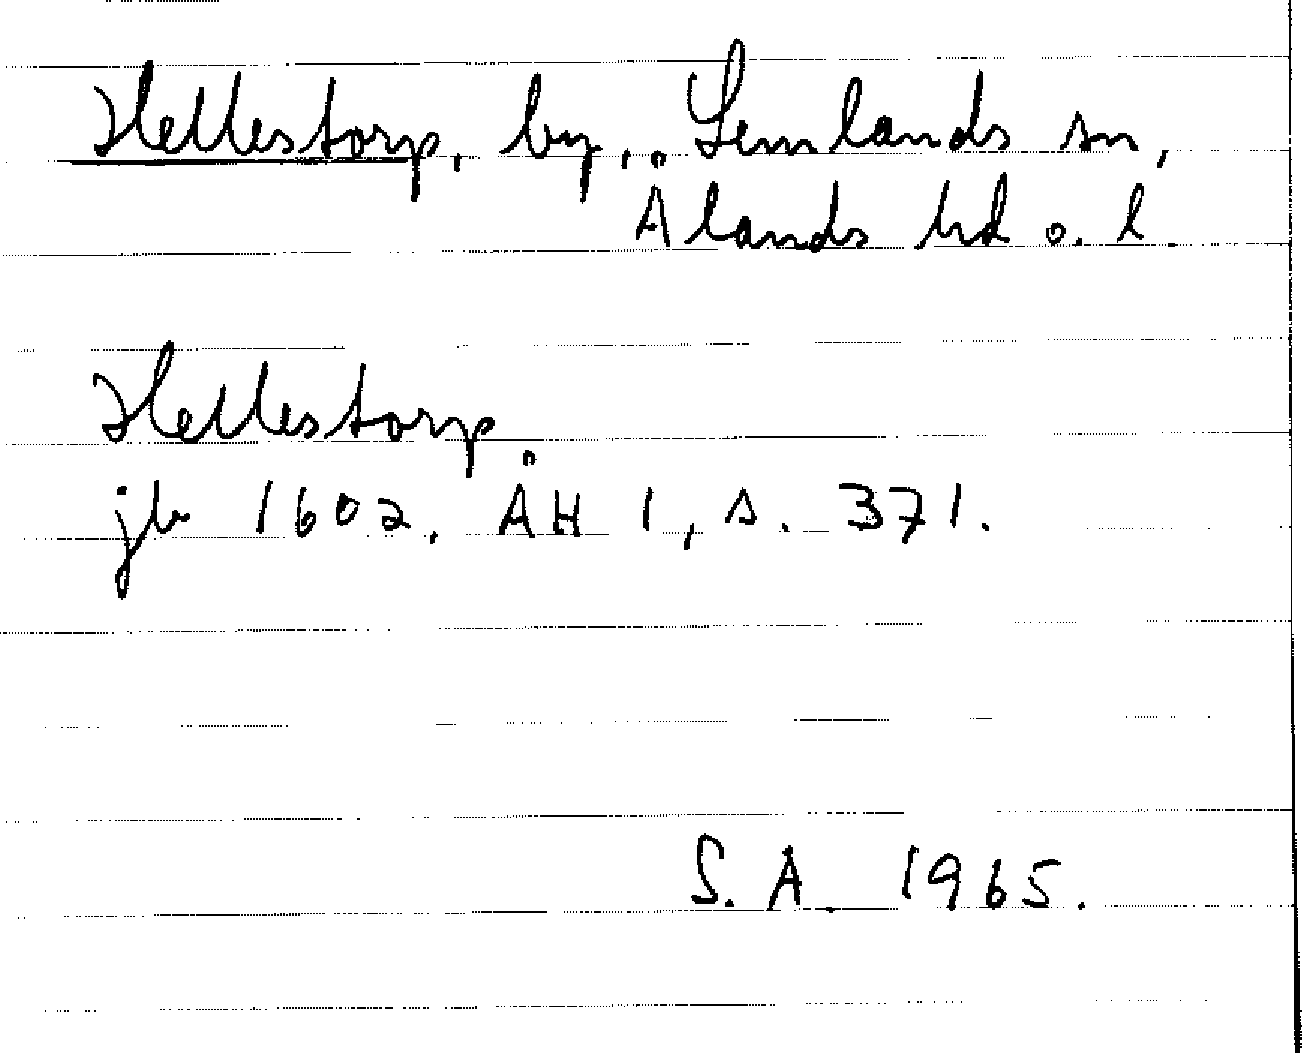 Hellestorp, by, Lemlands sn,
Ålands hd o. l.
Hellestorp
jb 1602. ÅH 1, s. 371.
S. A. 1965.